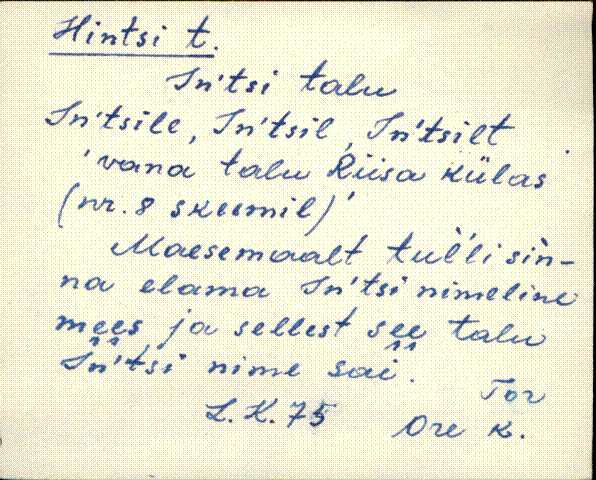 Hintsi t.
In'tsi talu
In'tsile, In'tsil, In'tsilt
'vana talu Riisa külas
(nr. 8 skeemil)'
Maesemaalt tul'li sin-
na elama In'tsi nimeline
mees ja sellest see talu
In'tsi nime sai.
Tor
L.K. 75 Ore k.